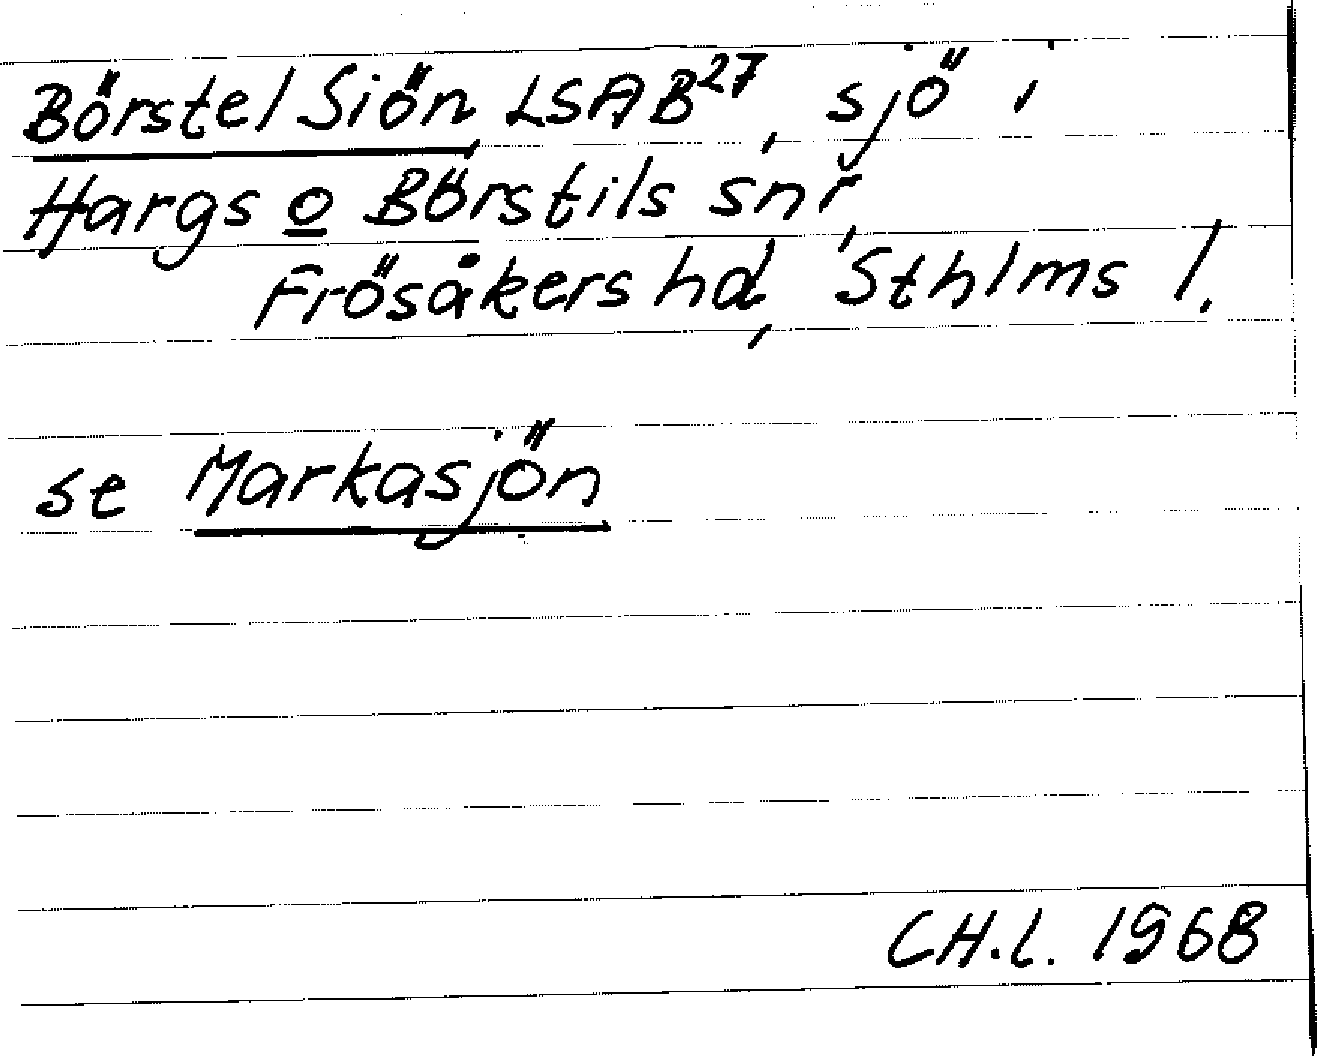 Börstel Siön LSAB²⁷, sjö i
Hargs o Börstils snr,
Frösåkers hd, Sthlms l.
se Markasjön
CH.L. 1968